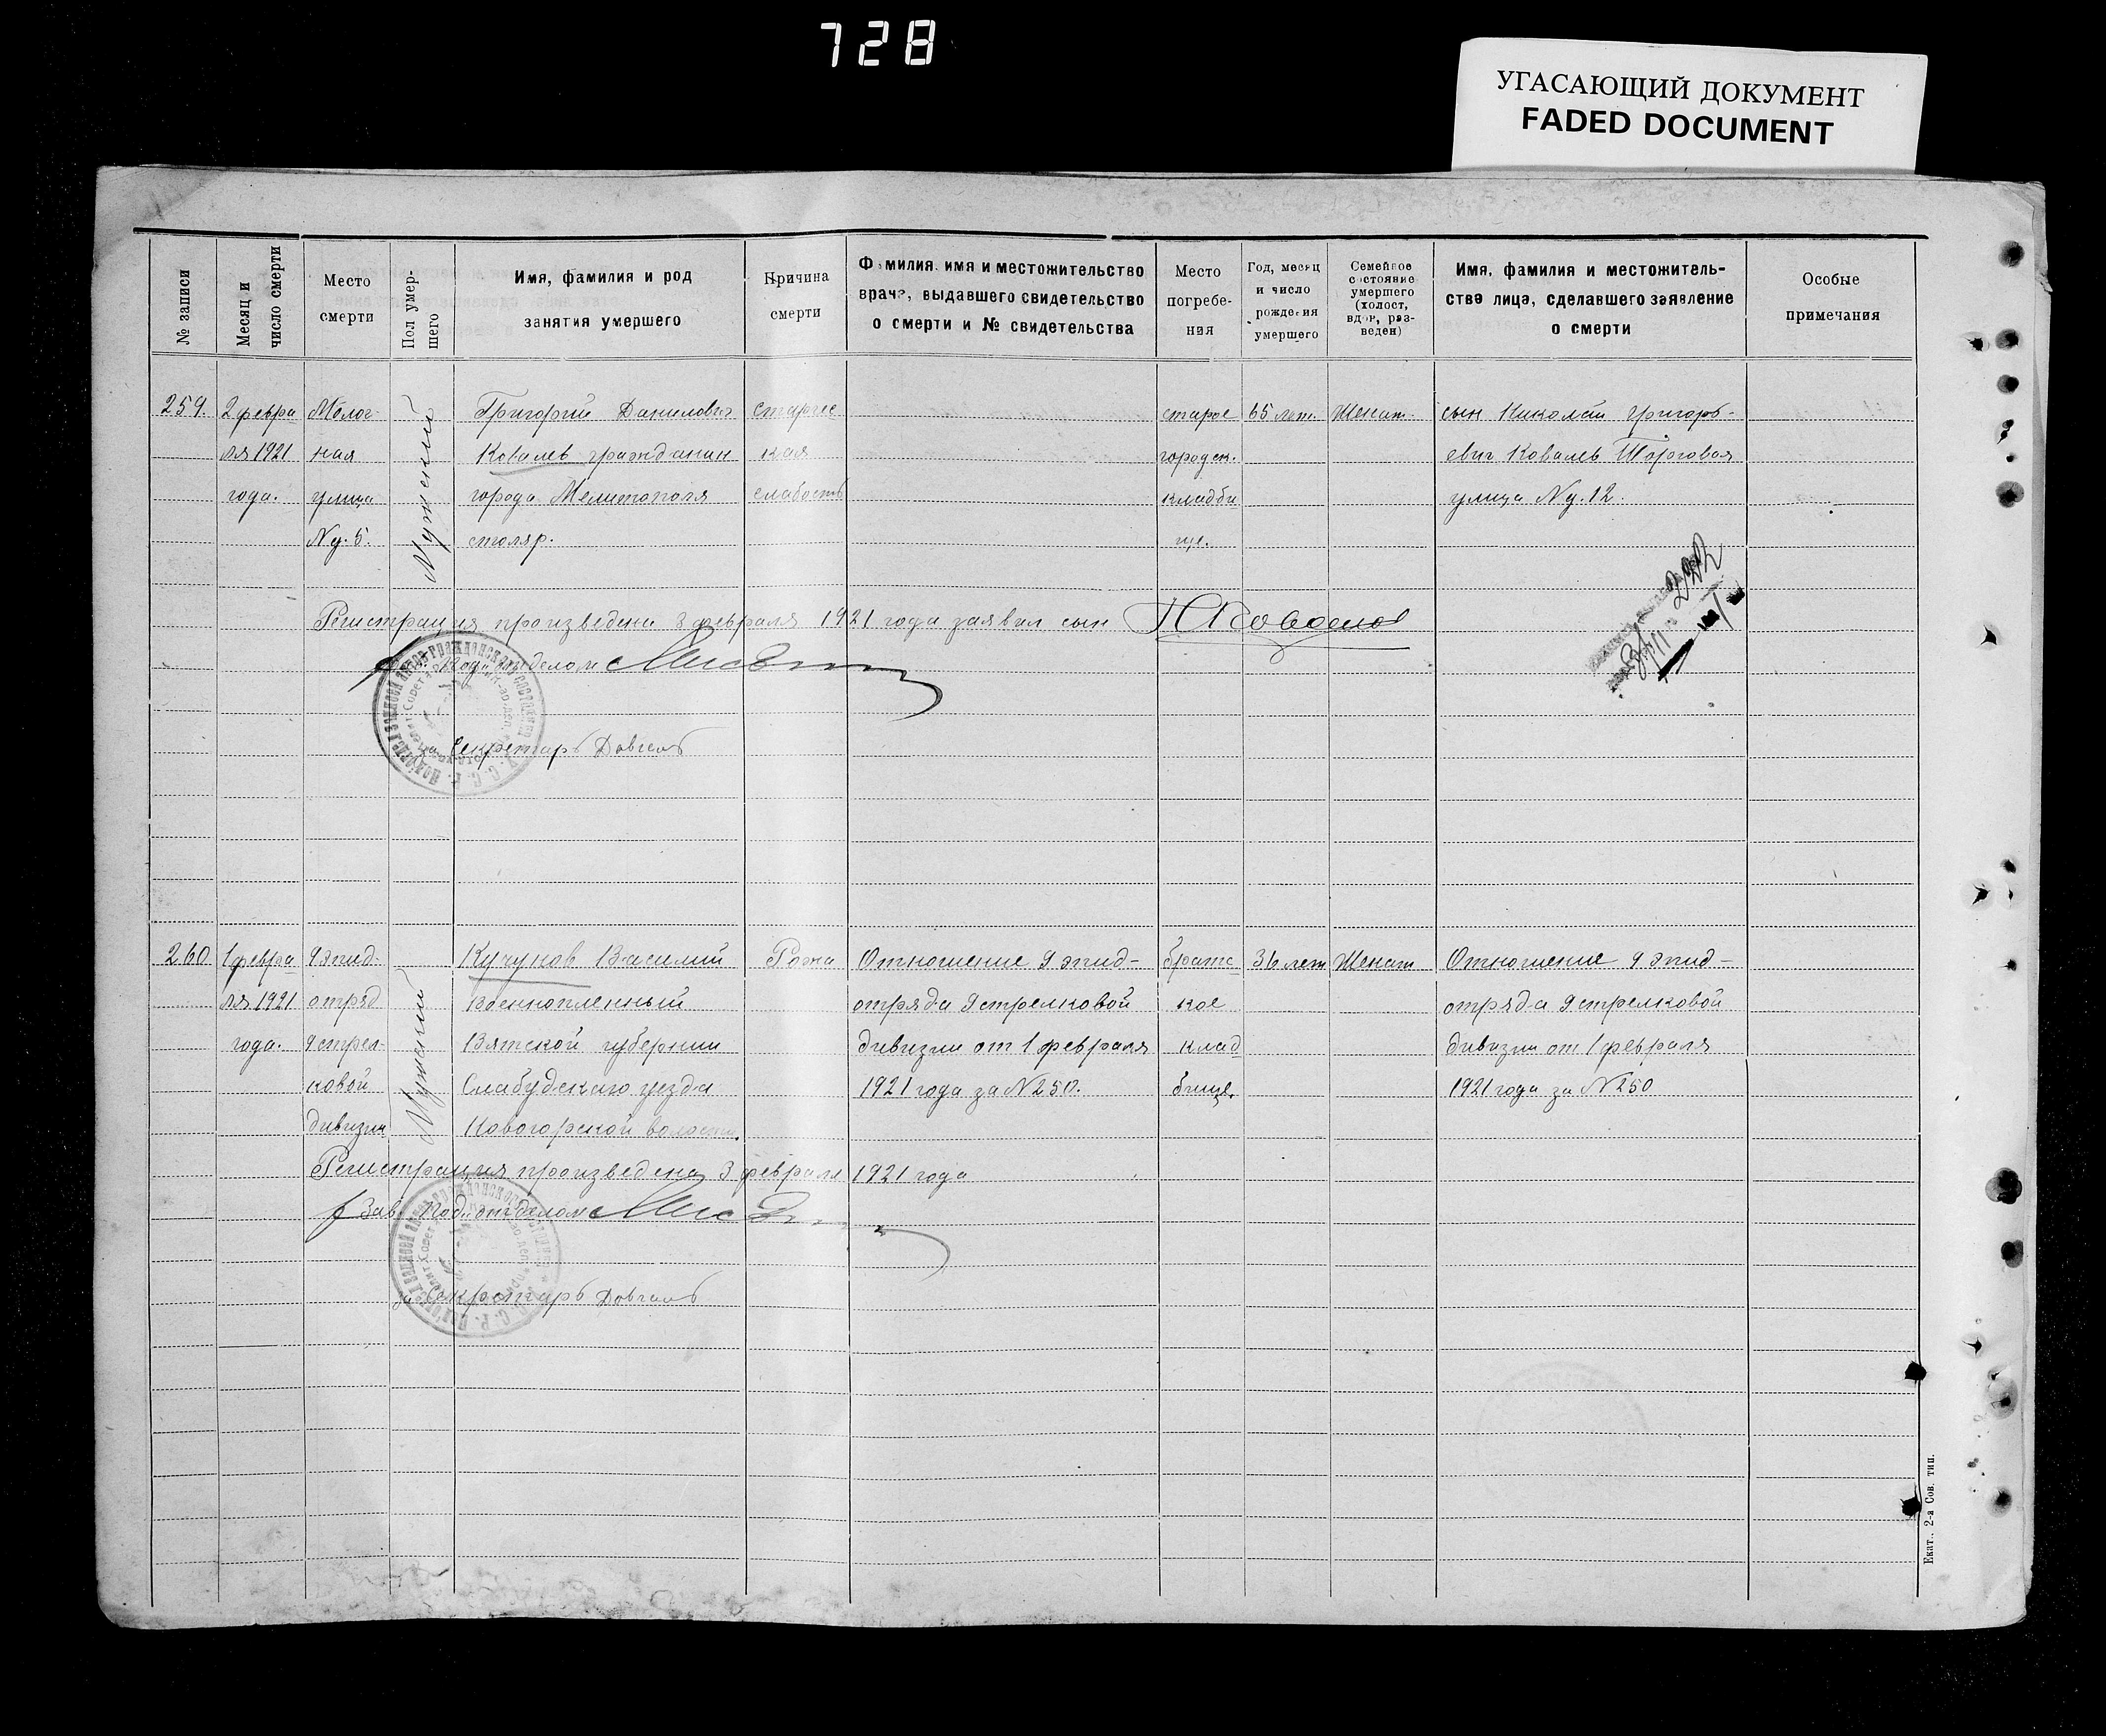 728
УГАСАЮЩИЙ ДОКУМЕНТ
FADED DOCUMENT
№ записи
Месяц и число смерти
Место смерти
Пол умершего
Имя, фамилия и род занятия умершего
Причина смерти
Фамилия, имя и местожительство врача, выдавшего свидетельство о смерти и № свидетельства
Место погребения
Год, месяц и число рождения умершего
Семейное состояние умершего (холост, вдов, разведен)
Имя, фамилия и местожительство лица, сделавшего заявление о смерти
Особые примечания
259.
2 февра
ля 1921
года.
Молоч-
ная
улица
№ д. 5.
Мужский
Григорий Данилович
Ковалев гражданин
города Мелитополя
столяр.
старчес
кая
слабость
старое
городск.
кладби
ще.
65 лет.
Женат.
сын Николай Григорь-
евич Ковалев Торговая
улица № д. 12.
Регистрация произведена 8 февраля 1921 года заявил сын
Подотделом
Секретарь Довгаль
260
1 февра
ля 1921
года.
9 эпид-
отряд
9 стрел-
ковой
дивизии
Мужский
Кучуков Василий
военнопленный
Вятской губернии
Слабудскаго уезда
Ковогорской волости.
Рожа
Отношение 9 эпид-
отряда 9 стрелковой
дивизии от 1 февраля
1921 года за N 250.
братс
кое
клад
бище.
36 лет
Женат
Отношение 9 эпид-
отряда 9 стрелковой
дивизии от 1 февраля
1921 года за N 250
Регистрация произведена 3 февраля 1921 года
Зав. Подотделом
за Секретарь Довгаль
Екат.. 2-я Сов. тип.